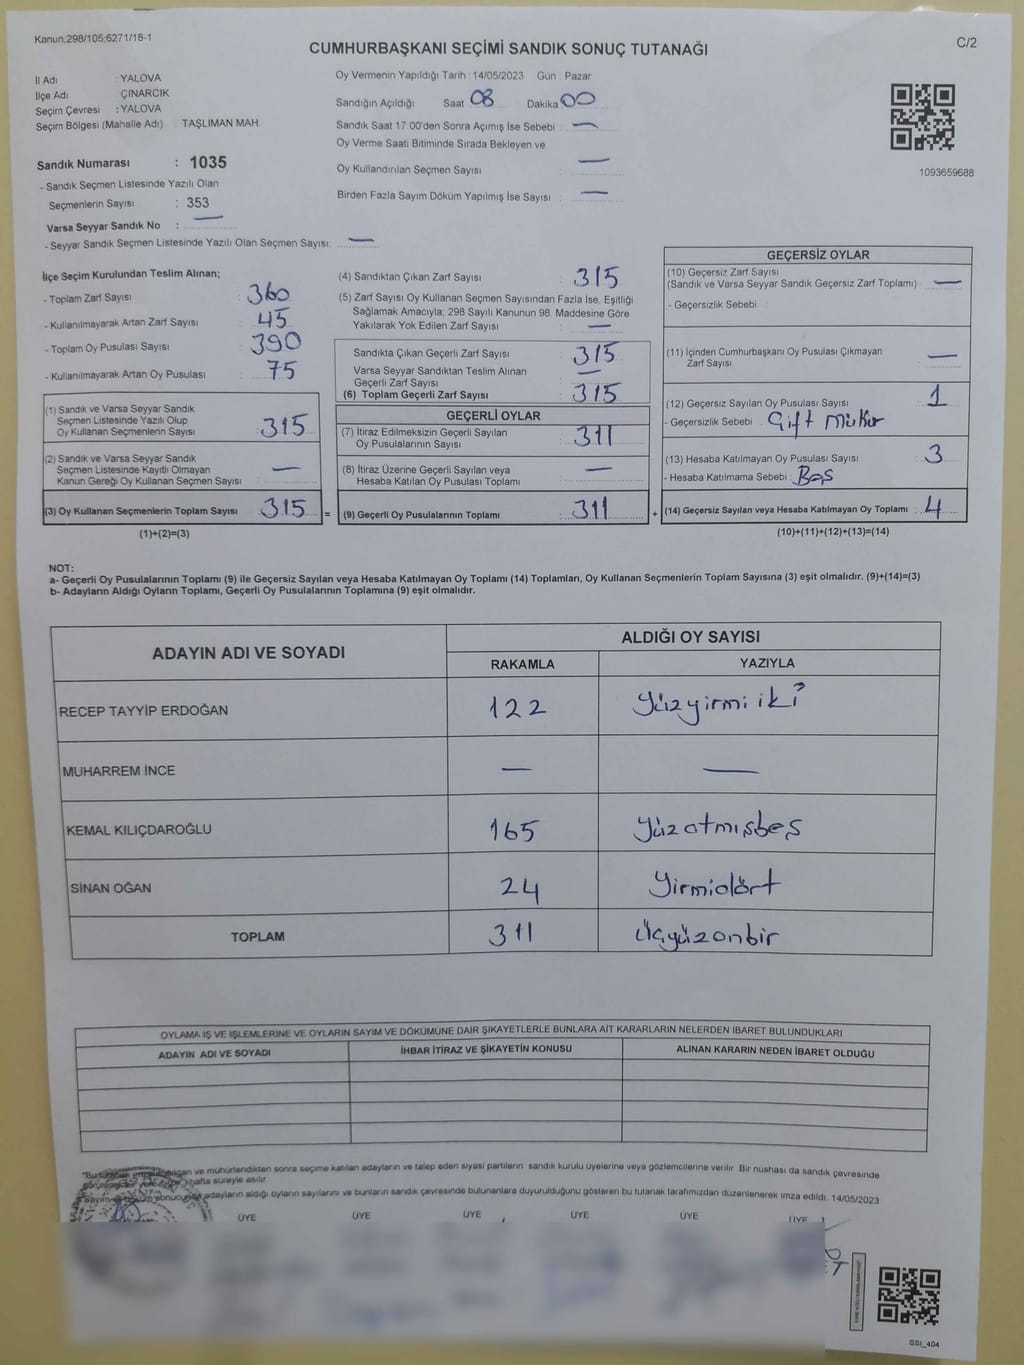 Kanun;298/105;6271/18-1
CUMHURBAŞKANI SEÇİMİ SANDIK SONUÇ TUTANAĞI
C/2
İl Adı : YALOVA
İlçe Adı : ÇINARCIK
Seçim Çevresi : YALOVA
Seçim Bölgesi (Mahalle Adı) : TAŞLİMAN MAH.
Oy Vermenin Yapıldığı Tarih : 14/05/2023 Gün : Pazar
Sandığın Açıldığı Saat 08 Dakika 00
Sandık Saat 17.00'den Sonra Açımış İse Sebebi : —
Oy Verme Saati Bitiminde Sırada Bekleyen ve
Oy Kullandırılan Seçmen Sayısı : —
Birden Fazla Sayım Döküm Yapılmış İse Sayısı : —
1093659688
Sandık Numarası : 1035
- Sandık Seçmen Listesinde Yazılı Olan
Seçmenlerin Sayısı : 353
Varsa Seyyar Sandık No : —
- Seyyar Sandık Seçmen Listesinde Yazılı Olan Seçmen Sayısı: —
İlçe Seçim Kurulundan Teslim Alınan;
- Toplam Zarf Sayısı : 360
- Kullanılmayarak Artan Zarf Sayısı : 45
- Toplam Oy Pusulası Sayısı : 390
- Kullanılmayarak Artan Oy Pusulası : 75
(1) Sandık ve Varsa Seyyar Sandık
Seçmen Listesinde Yazılı Olup
Oy Kullanan Seçmenlerin Sayısı : 315
(2) Sandık ve Varsa Seyyar Sandık
Seçmen Listesinde Kayıtlı Olmayan
Kanun Gereği Oy Kullanan Seçmen Sayısı : —
(3) Oy Kullanan Seçmenlerin Toplam Sayısı : 315 =
(1)+(2)=(3)
(4) Sandıktan Çıkan Zarf Sayısı : 315
(5) Zarf Sayısı Oy Kullanan Seçmen Sayısından Fazla İse, Eşitliği
Sağlamak Amacıyla; 298 Sayılı Kanunun 98. Maddesine Göre
Yakılarak Yok Edilen Zarf Sayısı : —
Sandıkta Çıkan Geçerli Zarf Sayısı : 315
Varsa Seyyar Sandıktan Teslim Alınan
Geçerli Zarf Sayısı : —
(6) Toplam Geçerli Zarf Sayısı : 315
GEÇERLİ OYLAR
(7) İtiraz Edilmeksizin Geçerli Sayılan
Oy Pusulalarının Sayısı : 311
(8) İtiraz Üzerine Geçerli Sayılan veya
Hesaba Katılan Oy Pusulası Toplamı : —
(9) Geçerli Oy Pusulalarının Toplamı : 311 +
GEÇERSİZ OYLAR
(10) Geçersiz Zarf Sayısı
(Sandık ve Varsa Seyyar Sandık Geçersiz Zarf Toplamı) : —
- Geçersizlik Sebebi :
(11) İçinden Cumhurbaşkanı Oy Pusulası Çıkmayan
Zarf Sayısı : —
(12) Geçersiz Sayılan Oy Pusulası Sayısı : 1
- Geçersizlik Sebebi : Çift
(13) Hesaba Katılmayan Oy Pusulası Sayısı : 3
- Hesaba Katılmama Sebebi : Boş
(14) Geçersiz Sayılan veya Hesaba Katılmayan Oy Toplamı : 4
(10)+(11)+(12)+(13)=(14)
NOT:
a- Geçerli Oy Pusulalarının Toplamı (9) ile Geçersiz Sayılan veya Hesaba Katılmayan Oy Toplamı (14) Toplamları, Oy Kullanan Seçmenlerin Toplam Sayısına (3) eşit olmalıdır. (9)+(14)=(3)
b- Adayların Aldığı Oyların Toplamı, Geçerli Oy Pusulalarının Toplamına (9) eşit olmalıdır.
ADAYIN ADI VE SOYADI ALDIĞI OY SAYISI
RAKAMLA YAZIYLA
RECEP TAYYİP ERDOĞAN 122 Yüzyirmiiki
MUHARREM İNCE — —
KEMAL KILIÇDAROĞLU 165 Yüzatmışbeş
SİNAN OĞAN 24 Yirmidört
TOPLAM 311 Üçyüzonbir
OYLAMA İŞ VE İŞLEMLERİNE VE OYLARIN SAYIM VE DÖKÜMÜNE DAİR ŞİKAYETLERLE BUNLARA AİT KARARLARIN NELERDEN İBARET BULUNDUKLARI
ADAYIN ADI VE SOYADI İHBAR İTİRAZ VE ŞİKAYETİN KONUSU ALINAN KARARIN NEDEN İBARET OLDUĞU
ve mühürlendikten sonra seçime katılan adayların ve talep eden siyasi partilerin sandık kurulu üyelerine veya gözlemcilerine verilir. Bir nüshası da sandık çevresinde
hafta süreyle asılır.
adayların aldığı oyların sayılarını ve bunların sandık çevresinde bulunanlara duyurulduğunu gösteren bu tutanak tarafımızdan düzenlenerek imza edildi. 14/05/2023
ÜYE ÜYE ÜYE ÜYE ÜYE ÜYE
SSI_404